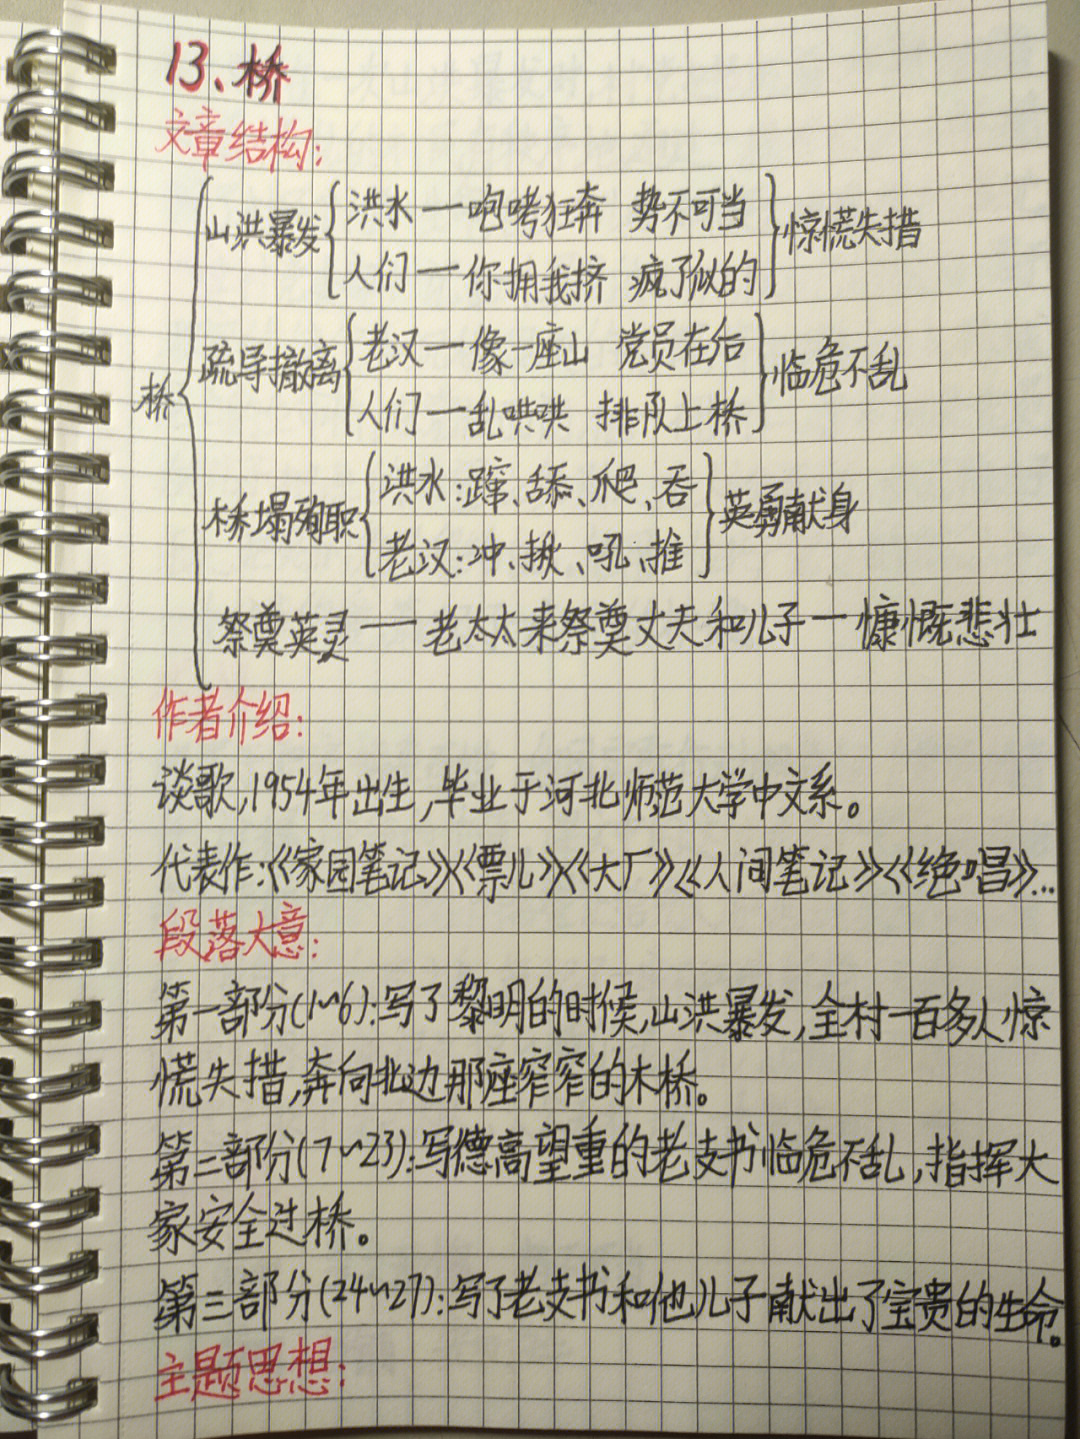 13、桥
文章结构:
山洪暴发 洪水—咆哮狂奔 势不可当 惊慌失措
人们—你拥我挤 疯了似的
桥 疏导撤离 老汉—像一座山 党员在后 临危不乱
人们—乱哄哄 排队上桥
桥塌殉职 洪水:蹿、舔、爬、吞 英勇献身
老汉:冲、揪、吼、推
祭奠英灵—老太太来祭奠丈夫和儿子—慷慨悲壮
作者介绍:
谈歌,1954年出生,毕业于河北师范大学中文系。
代表作:《家园笔记》《票儿》《大厂》《人间笔记》《绝唱》...
段落大意:
第一部分(1~6):写了黎明的时候,山洪暴发,全村一百多人惊
慌失措,奔向北边那座窄窄的木桥。
第二部分(7~23):写德高望重的老支书临危不乱,指挥大
家安全过桥。
第三部分(24~27):写了老支书和他儿子献出了宝贵的生命。
主题思想: